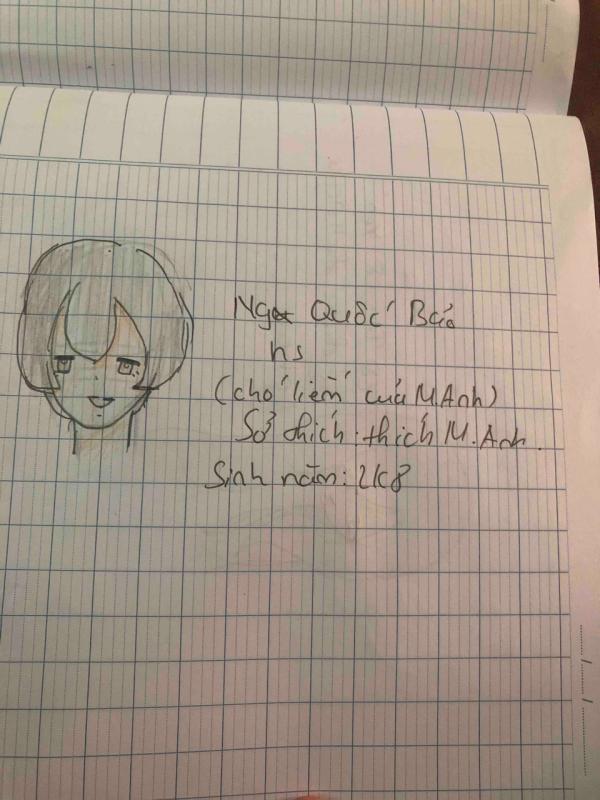 Ngọc Quốc Bảo
hs
(chó liếm của M.Anh)
Sở thích: thích M.Anh.
Sinh năm: 2K8